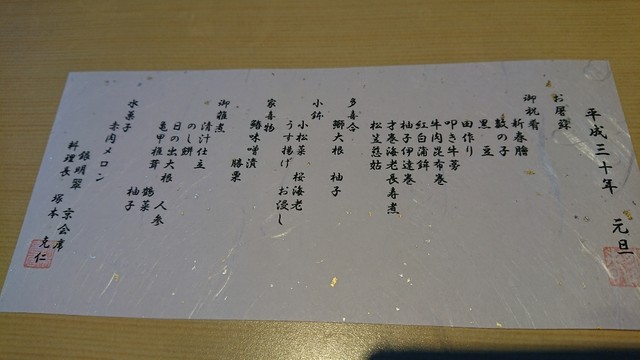 平成三十年 元旦
お屠蘇
御祝肴
新春膾
数の子
黒豆
田作り
叩き牛蒡
牛肉昆布巻
紅白蒲鉾
柚子伊達巻
才巻海老長寿煮
松笠慈姑
多喜合
鰤大根 柚子
小鉢
小松菜 桜海老
うす揚げ お浸し
家喜物
鰆味噌漬
勝栗
御雑煮
清汁仕立
のし餅
日の出大根 人参
亀甲椎茸 鶴菜 柚子
水菓子
赤肉メロン
銀明翠 京会席
料理長 塚本 克仁